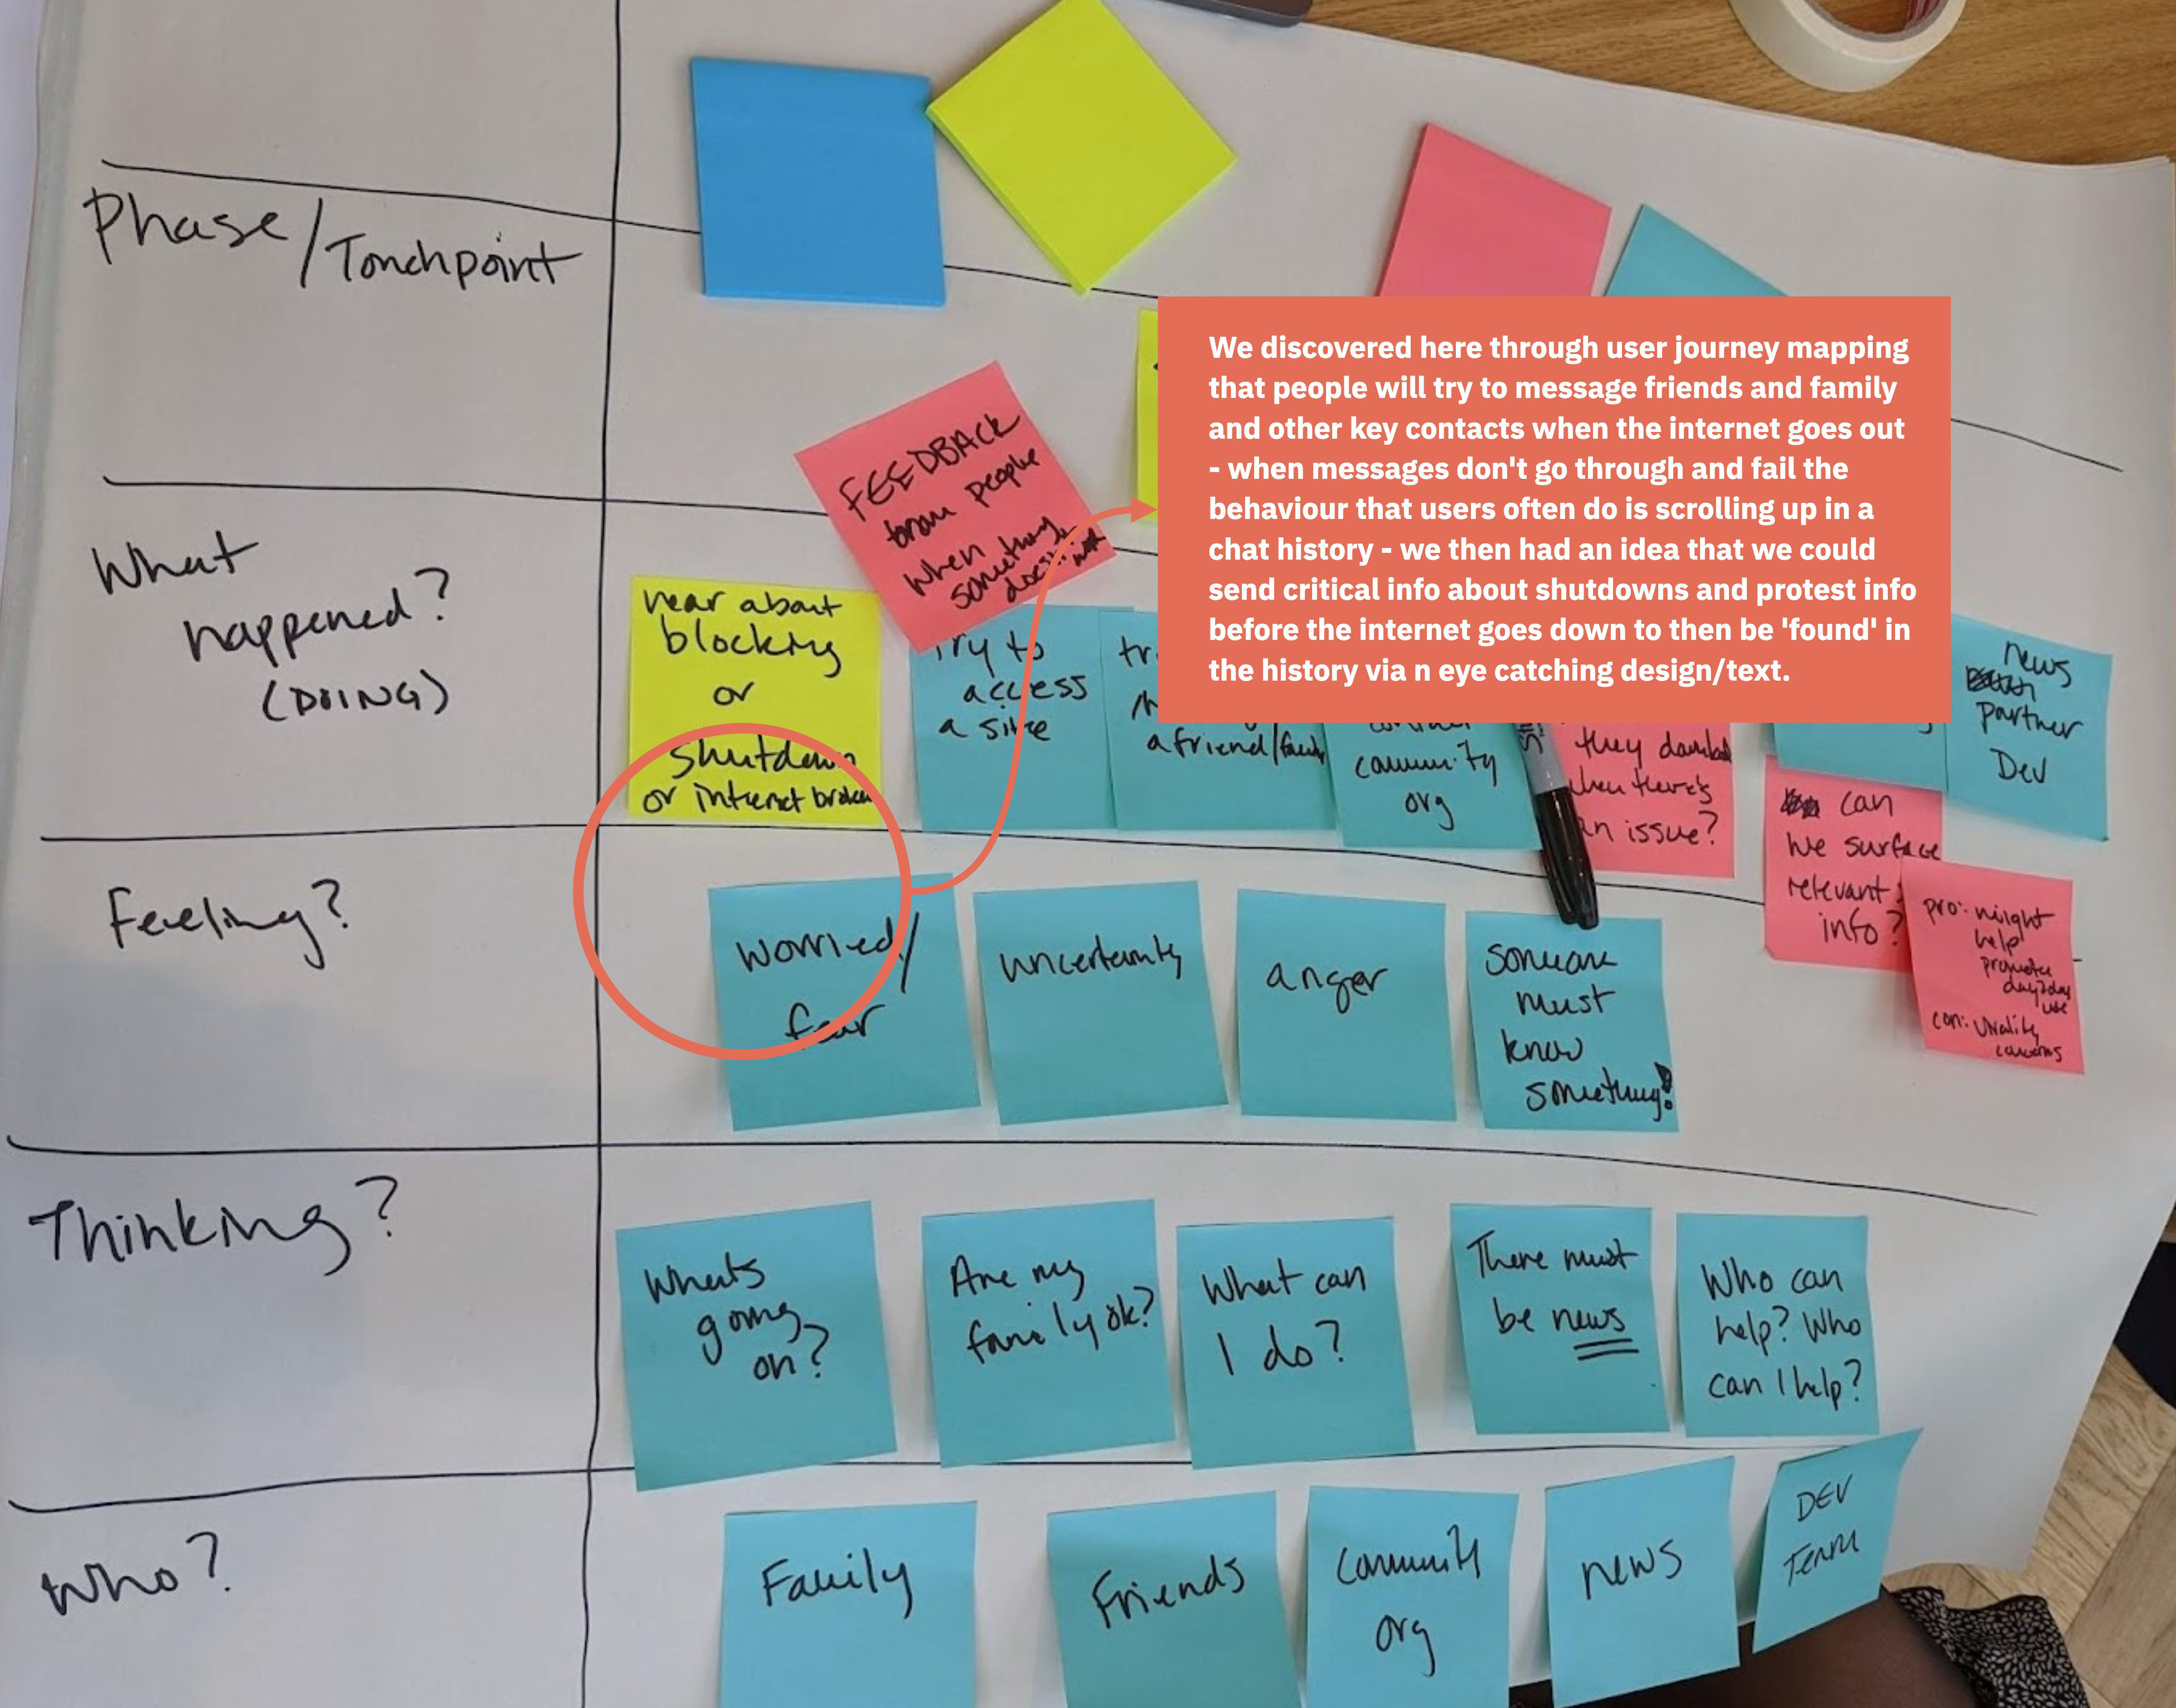 Phase/Touchpoint
We discovered here through user journey mapping
that people will try to message friends and family
and other key contacts when the internet goes out
- when messages don't go through and fail the
behaviour that users often do is scrolling up in a
chat history - we then had an idea that we could
send critical info about shutdowns and protest info
before the internet goes down to then be 'found' in
the history via n eye catching design/text.
What
happened?
(DOING)
FEEDBACK
from people
when
something
doesn't work
hear about
blocking
or
shutdown
or internet broken
Try to
access
a site
a friend/family
community
org
they
when there's
an issue?
can
we surface
relevant
info?
news
partner
Dev
pro: might
help
promote
day2day
use
con: virality
concerns
Feeling?
worried/
fear
uncertainty
anger
someone
must
know
something!
Thinking?
Whats
going
on?
Are my
family ok?
What can
I do?
There must
be news
Who can
help? Who
can I help?
Who?
Family
Friends
Community
org
news
DEV
TEAM